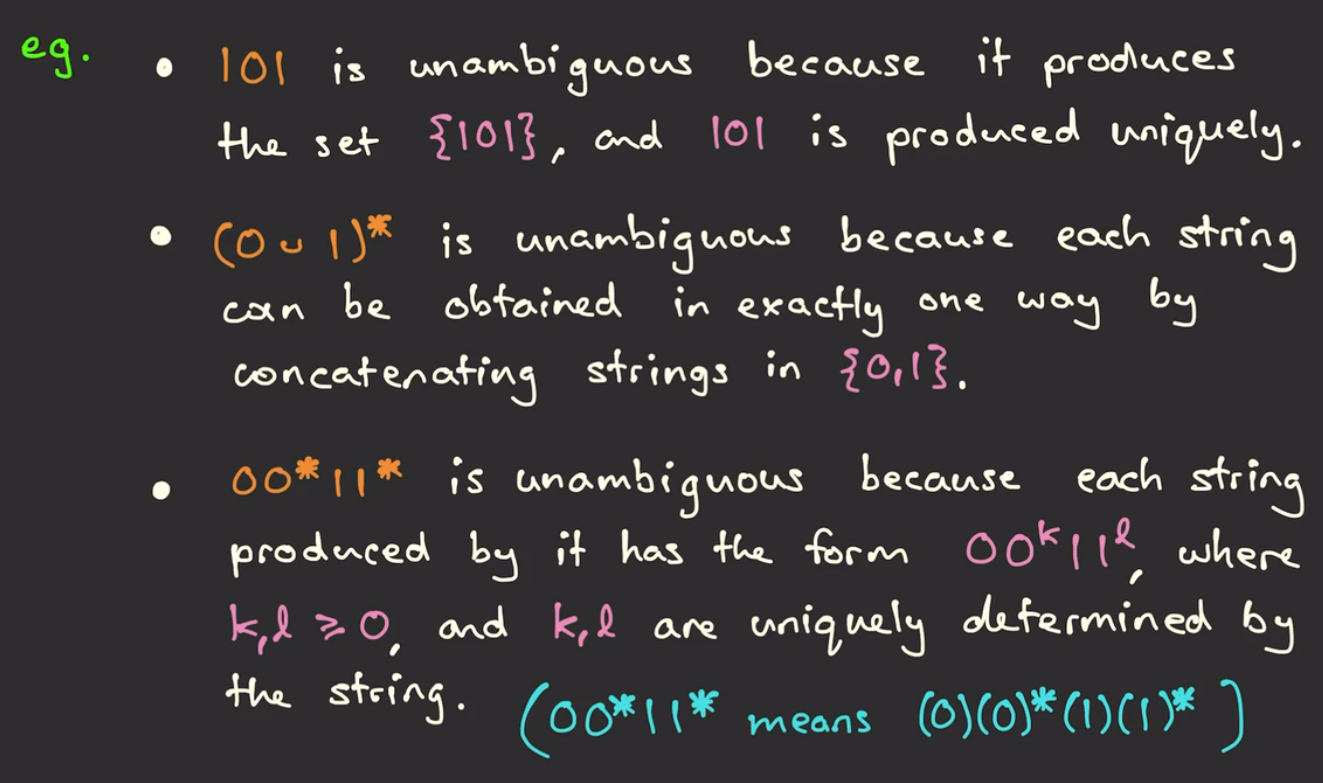 eg. • 101 is unambiguous because it produces
the set {101}, and 101 is produced uniquely.
• (0 ∪ 1)* is unambiguous because each string
can be obtained in exactly one way by
concatenating strings in {0,1}.
• 00*11* is unambiguous because each string
produced by it has the form 00ᵏ11ˡ, where
k,l ≥ 0, and k,l are uniquely determined by
the string. (00*11* means (0)(0)*(1)(1)*)